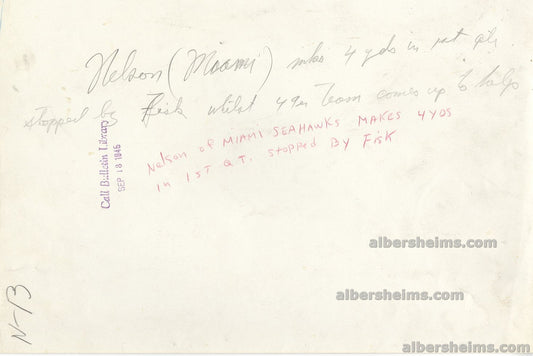 Nelson (Miami) makes 4 yds in 1st qtr.
stopped by Fisk whilst 49er Team comes up to help
Nelson of MIAMI SEAHAWKS MAKES 4YDS
in 1ST QT. STOPPED BY FISK
Call Bulletin Library
SEP 18 1946
N-13
albersheims.com
albersheims.com
albersheims.com